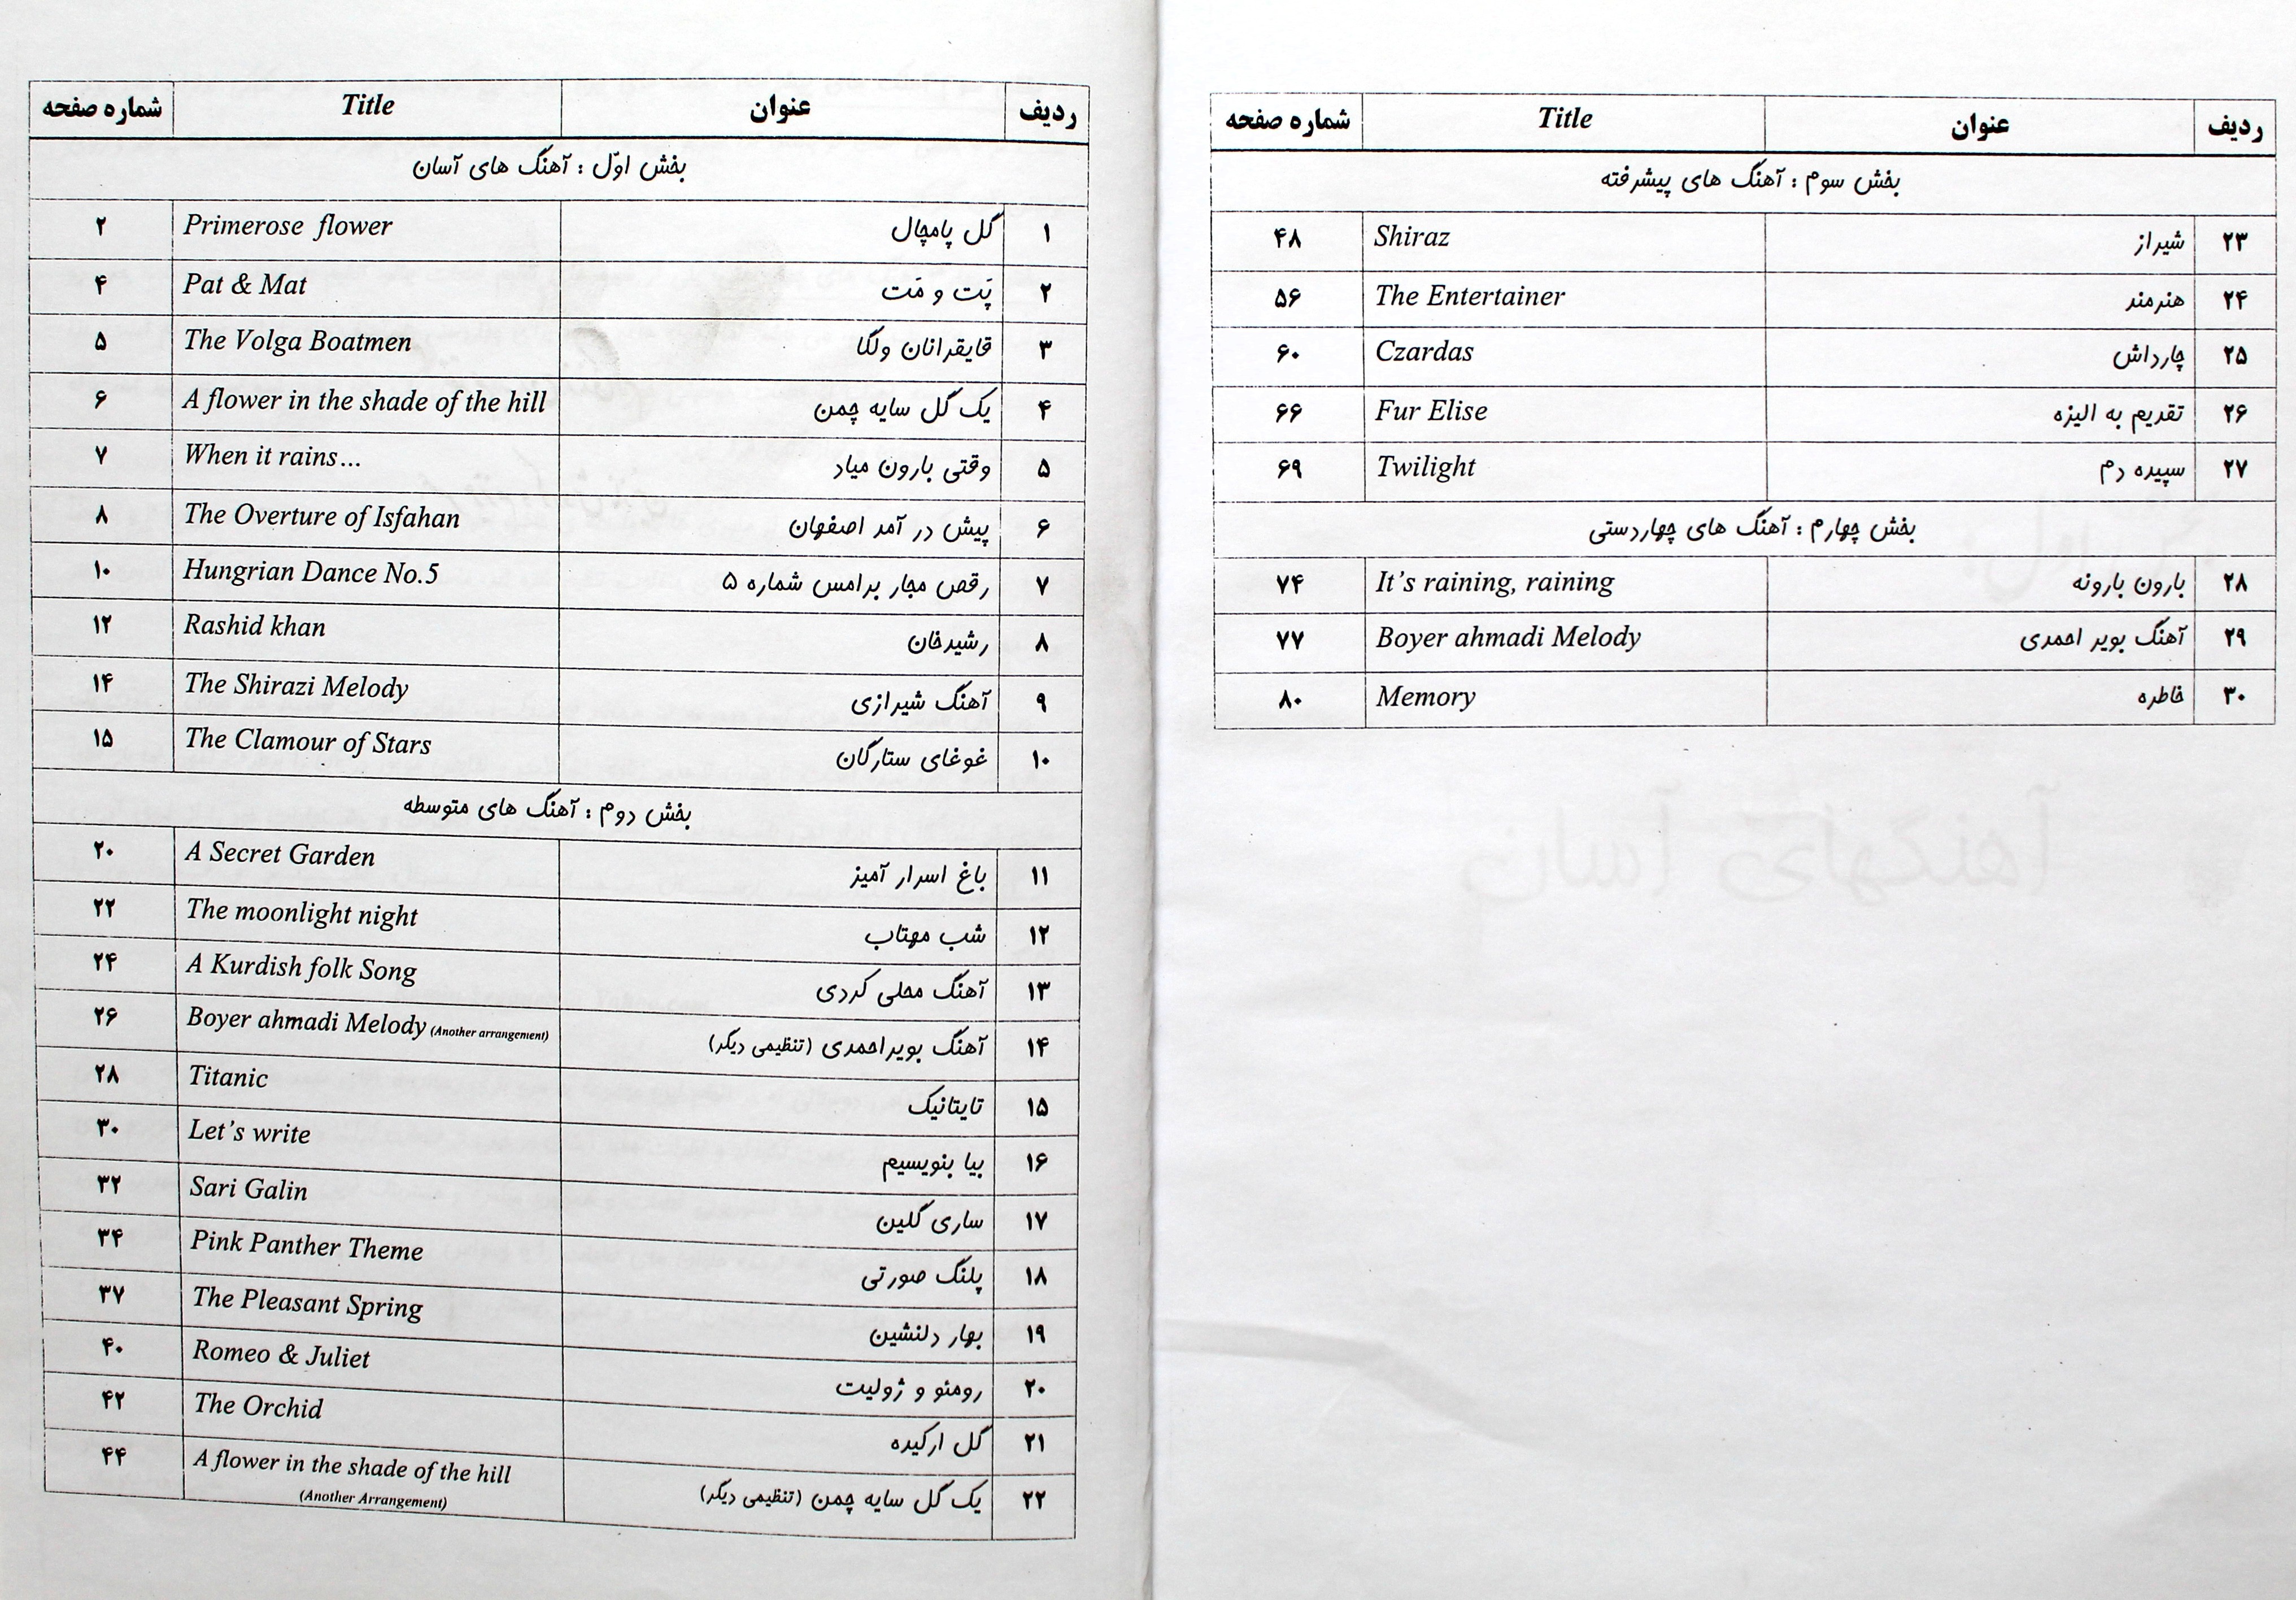 ردیف عنوان Title شماره صفحه
بخش اوّل : آهنگ های آسان
۱ گل پامچال Primerose flower ۲
۲ پَت و مَت Pat & Mat ۴
۳ قایقرانان ولگا The Volga Boatmen ۵
۴ یک گل سایه چمن A flower in the shade of the hill ۶
۵ وقتی بارون میاد When it rains... ۷
۶ پیش در آمد اصفهان The Overture of Isfahan ۸
۷ رقص مجار برامس شماره ۵ Hungrian Dance No.5 ۱۰
۸ رشیدخان Rashid khan ۱۲
۹ آهنگ شیرازی The Shirazi Melody ۱۴
۱۰ غوغای ستارگان The Clamour of Stars ۱۵
بخش دوم : آهنگ های متوسطه
۱۱ باغ اسرار آمیز A Secret Garden ۲۰
۱۲ شب مهتاب The moonlight night ۲۲
۱۳ آهنگ محلی کردی A Kurdish folk Song ۲۴
۱۴ آهنگ بویراحمدی (تنظیمی دیگر) Boyer ahmadi Melody (Another arrangement) ۲۶
۱۵ تایتانیک Titanic ۲۸
۱۶ بیا بنویسیم Let's write ۳۰
۱۷ ساری گلین Sari Galin ۳۲
۱۸ پلنگ صورتی Pink Panther Theme ۳۴
۱۹ بهار دلنشین The Pleasant Spring ۳۷
۲۰ رومئو و ژولیت Romeo & Juliet ۴۰
۲۱ گل ارکیده The Orchid ۴۲
۲۲ یک گل سایه چمن (تنظیمی دیگر) A flower in the shade of the hill ۴۴
(Another Arrangement)
ردیف عنوان Title شماره صفحه
بخش سوم : آهنگ های پیشرفته
۲۳ شیراز Shiraz ۴۸
۲۴ هنرمند The Entertainer ۵۶
۲۵ چارداش Czardas ۶۰
۲۶ تقدیم به الیزه Fur Elise ۶۶
۲۷ سپیده دم Twilight ۶۹
بخش چهارم : آهنگ های چهاردستی
۲۸ بارون بارونه It's raining, raining ۷۴
۲۹ آهنگ بویر احمدی Boyer ahmadi Melody ۷۷
۳۰ خاطره Memory ۸۰